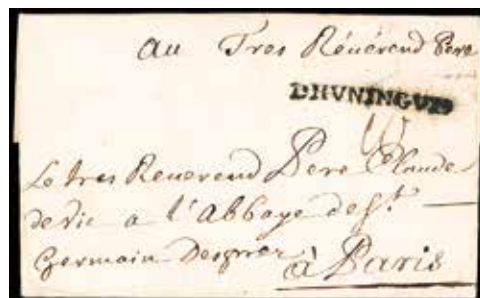 Au Tres Réuérend Pere
DHVNINGVE
Le tres Reuerend Pere Claude
de Vic a l'Abbaye de St.
Germain Desprez
à Paris